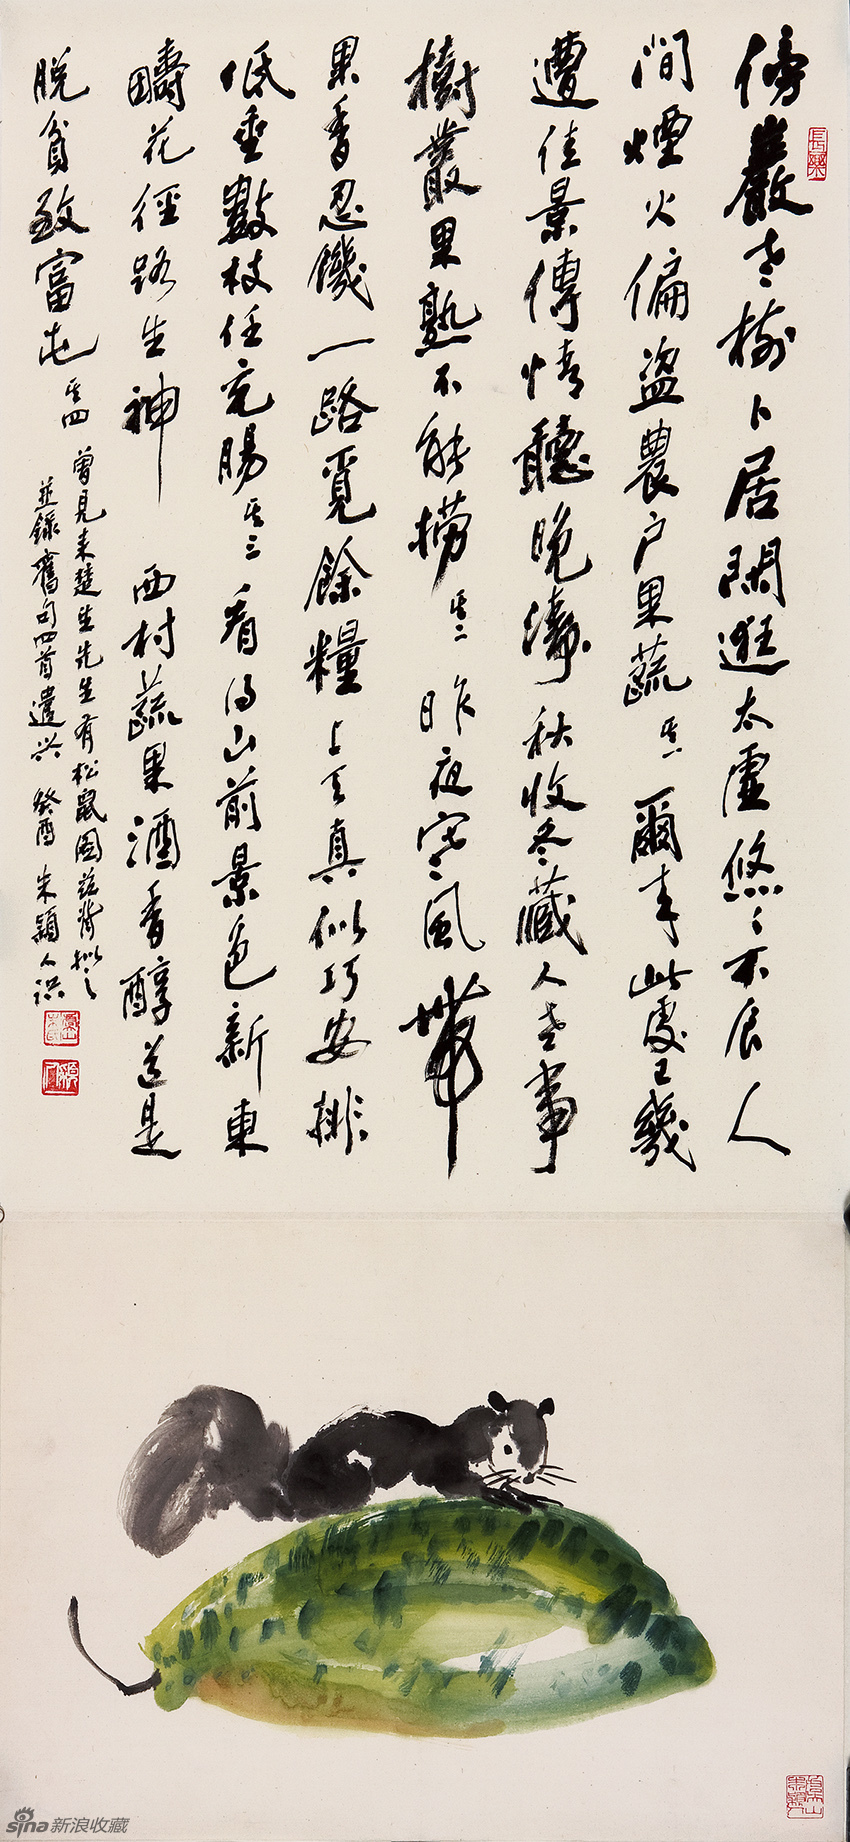 傍巖老樹卜居閑逛太虛悠々不食人
間煙火偏盜農戶果蔬 其一 爾來此處已幾
遭佳景傳情聽晚濤秋收冬藏人老事
樹叢果熟不能撈 其二 昨夜寒風帶
果香忍饑一路覓餘糧上天真似巧安排
低垂數枝任充腸 其三 看得山前景色新東
疇花徑路生神 西村蔬果酒香醇道是
脫貧致富屯 其四
曾見來楚生先生有松鼠圖茲背擬之
並錄舊句四首遣興 癸酉 朱穎人識
長樂
sina新浪收藏